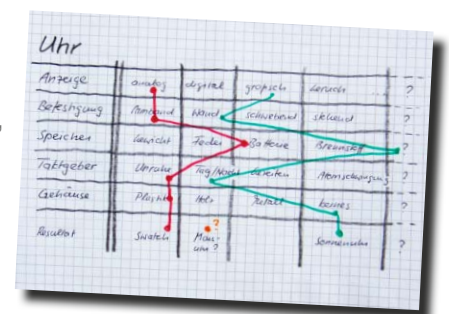 Uhr
Anzeige analog digital grafisch Geruch ... ?
Befestigung Armband Wand schwebend stehend ?
Speicher Gewicht Feder Batterie Brennstoff ?
Taktgeber Unruhe Tag/Nacht Gezeiten Atomschwingung ?
Gehäuse Plastik Holz Metall keines ?
Resultat Swatch ? Sonnenuhr ?